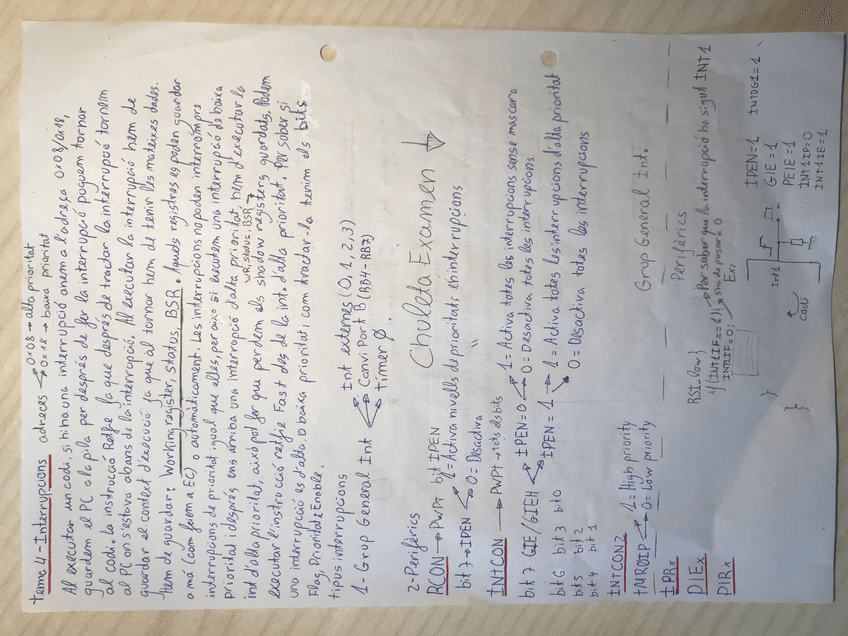 Tema 4 - Interrupcions adreces → 0x08 → alta prioritat
0x18 → baixa prioritat
Al executar un codi, si hi ha una interrupció anem a l'adreça 0x08/0x18,
guardem el PC a la pila per després de fer la interrupció poguem tornar
al codi. La instrucció Retfie fa que després de tractar la interrupció tornem
al PC on s'estava abans de la interrupció. Al executar la interrupció hem de
guardar el context d'execució ja que al tornar hem de tenir les mateixes dades.
Hem de guardar: Working register, status, BSR. Aquets registres es poden guardar
a mà (com fèiem a EC) automàticament. Les interrupcions no poden interrompre
interrupcions de prioritat igual que elles, per això si executem una interrupció de baixa
prioritat i després ens arriba una interrupció d'alta prioritat, hem d'executar la
WR, status, BSR
int d'alta prioritat, això pot fer que perdem els shadow registers guardats. Podem
executar l'instrucció retfie Fast des de la int. d'alta prioritat. Per saber si
una interrupció es d'alta o baixa prioritat i com tractar-la tenim els bits
Flag, Prioritat i Enable.
tipus interrupcions
1- Grup General Int Int externes (0, 1, 2, 3)
Canvi Port B (RB4-RB7)
timer 0.
2- Perifèrics
Chuleta Examen ↓
RCON → PWPT bit IPEN
bit 7 → IPEN 1 = Activa nivells de prioritats en interrupcions
0 = Desactiva "
INTCON → PWPT → tots els bits
bit 7 GIE/GIEH IPEN = 0 1 = Activa totes les interrupcions sense mascara
0 = Desactiva totes les interrupcions
IPEN = 1 → 1 = Activa totes les interrupcions d'alta prioritat
0 = Desactiva totes les interrupcions
bit 6 bit 3 bit 0
bit 5 bit 2
bit 4 bit 1
INTCON2
TMR0IP 1 = High priority
0 = Low priority
Grup General Int.
IPRx
Perifèrics
PIEx
PIRx
RSI_low()
if (INT1IF == 1) { → Per saber que la interrupció ha sigut INT1
INT1IF = 0; → s'ha de posar a 0
}
}
Ex,
Int1
codi
IPEN = 1
GIE = 1
PEIE = 1
INT1IP = 0
INT1IE = 1
INTDG1 = 1